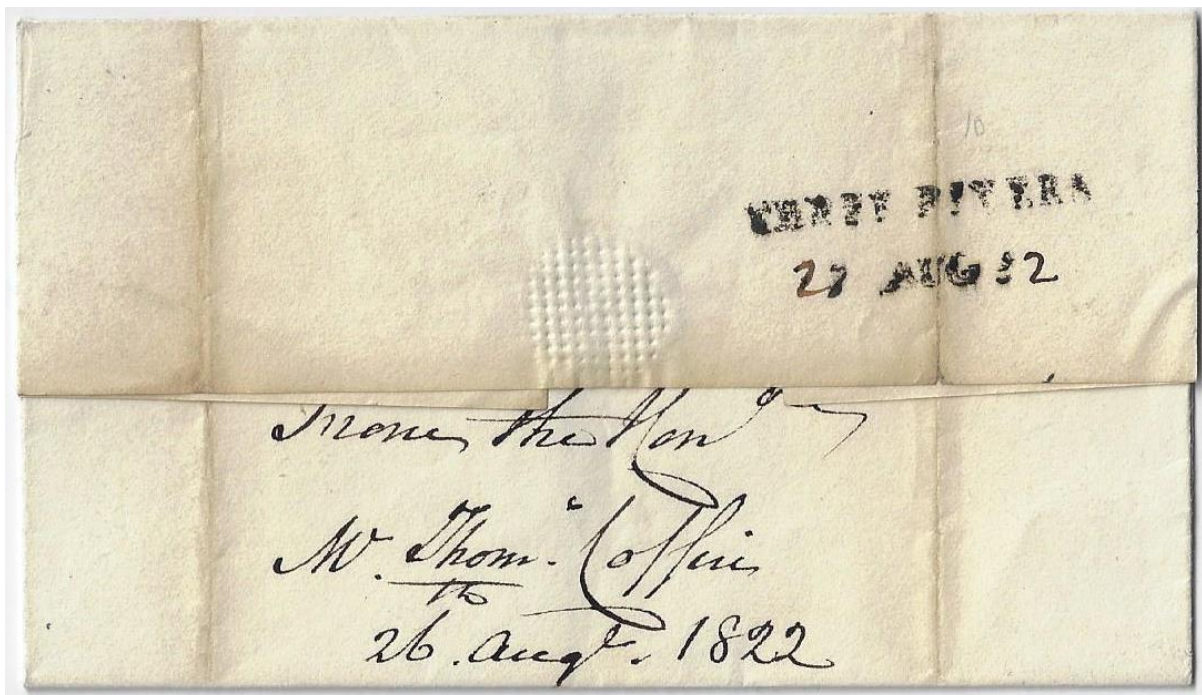 10
THREE RIVERS
27 AUG 22
From the Honble
Mr. Thoms. Coffin
26th. Augt. 1822